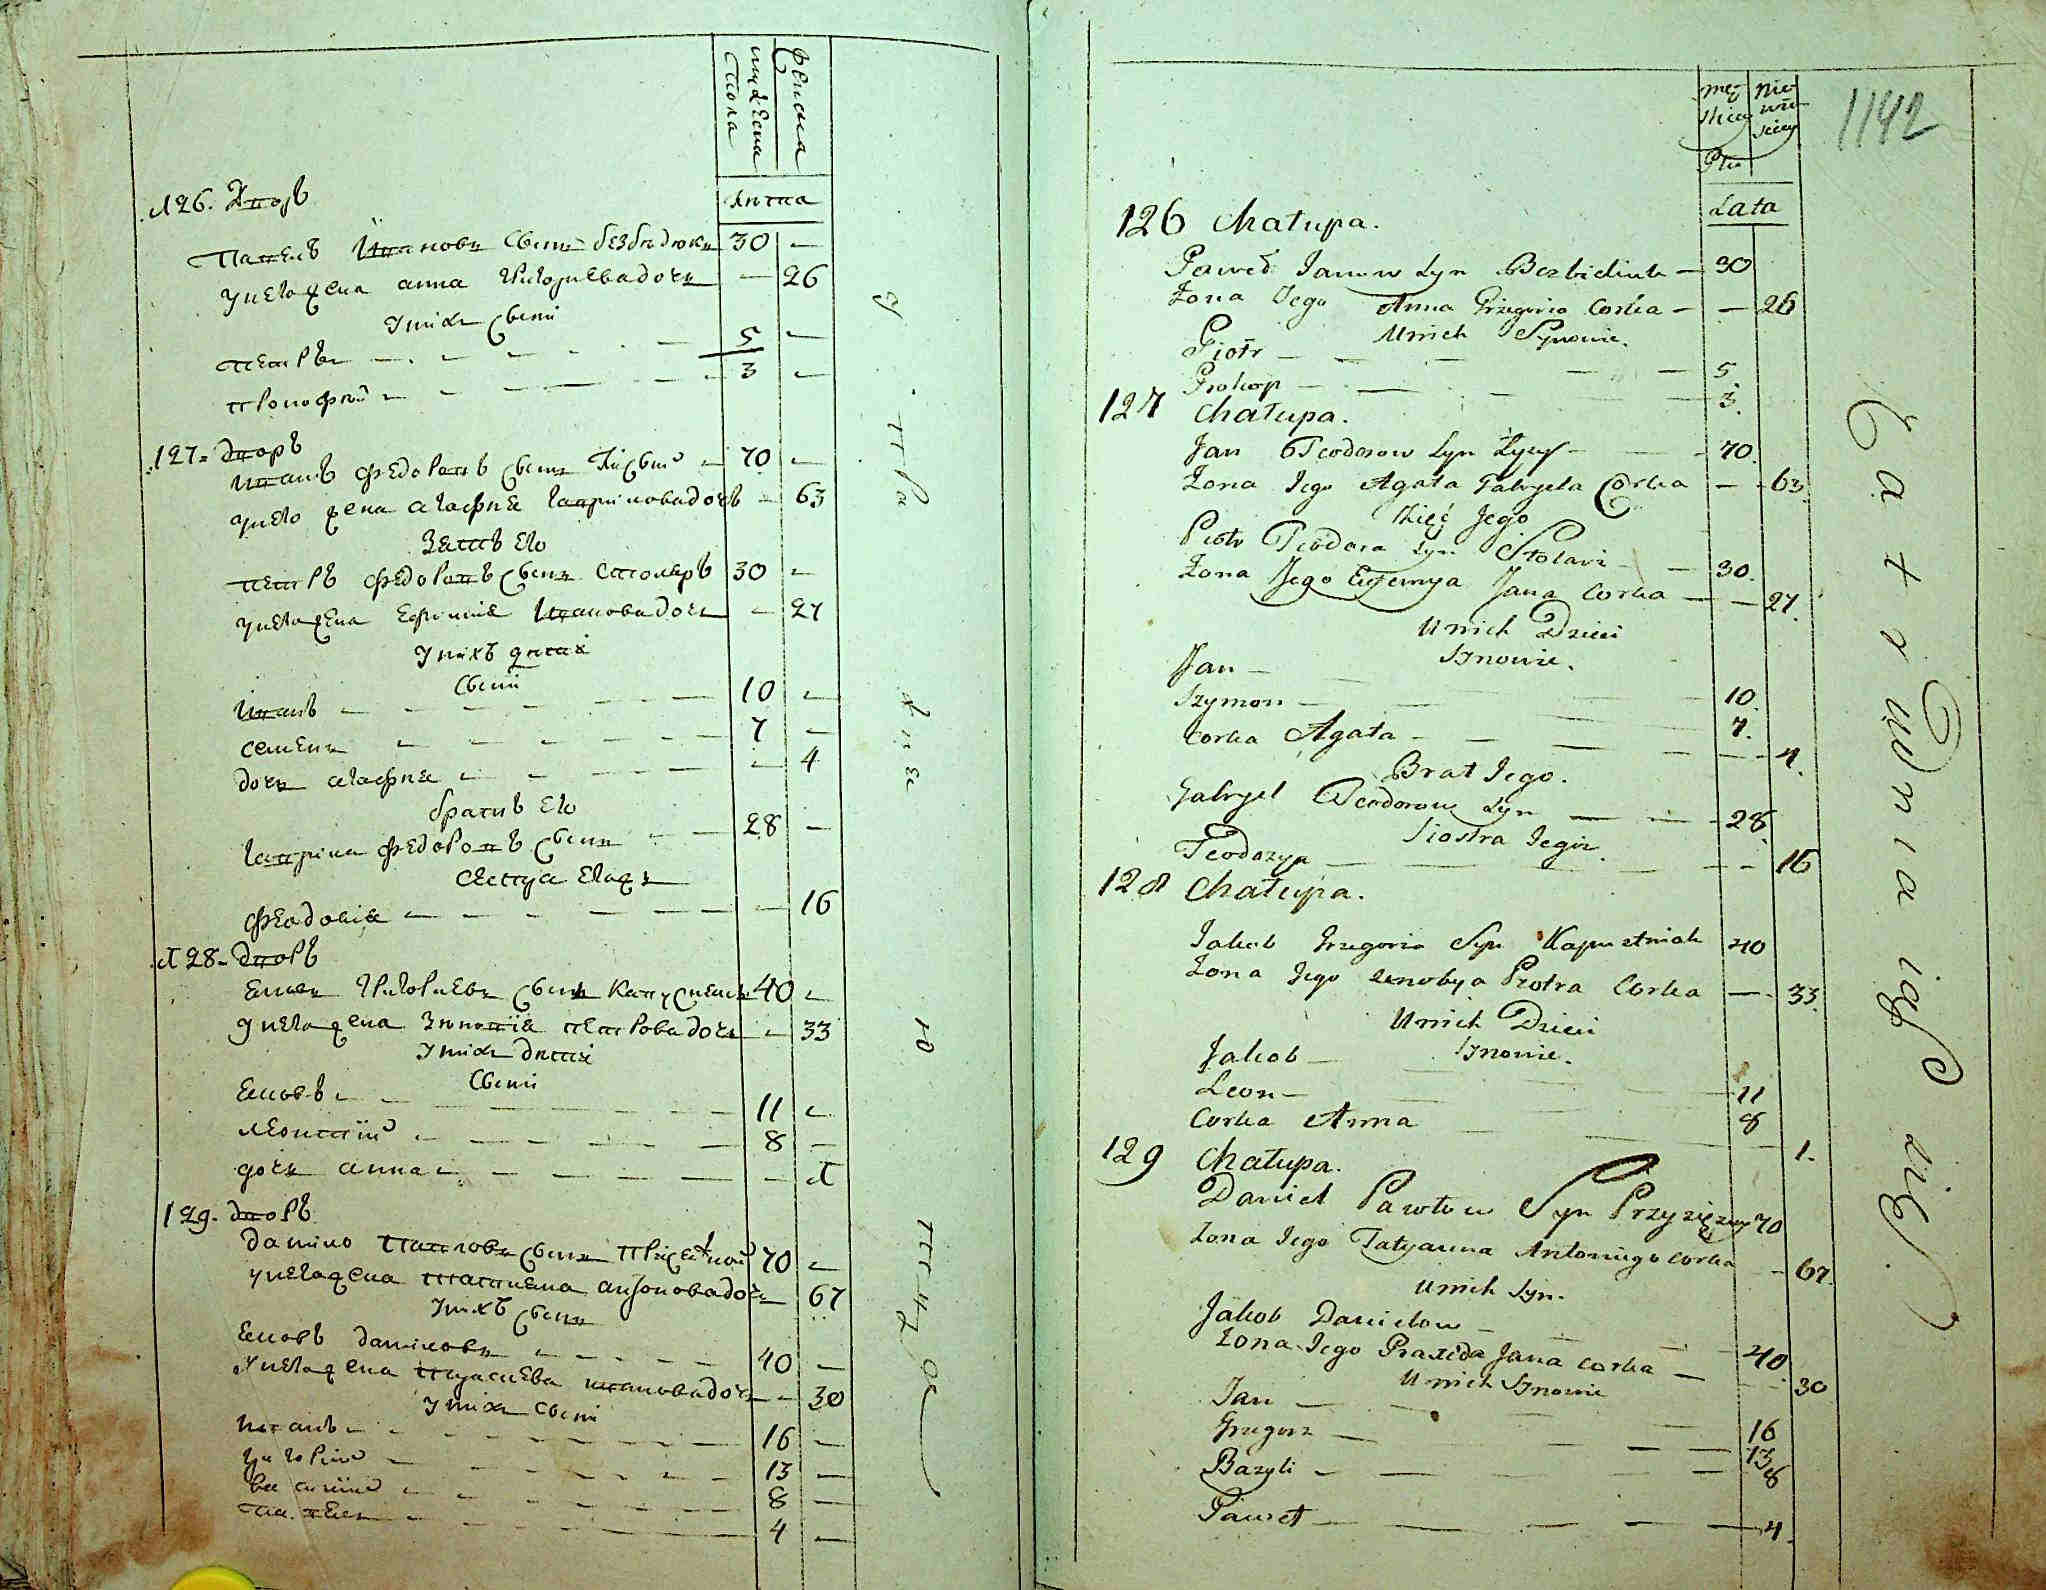 мужеска
пола
женска
лѣта
126. Дворъ
Павелъ Ивановъ сынъ Безбѣдюкъ 30 —
У него жена Анна Григориева дочь — 26
У них сыни
Петръ — 5 —
Прокофий — 3 —
127. Дворъ
Иванъ Федоровъ сынъ Лисый — 70 —
У него жена Агафия Гаврилова дочь — 63
Зять его
Петръ Федоровъ сынъ Столяръ 30 —
У него жена Ефимия Иванова дочь — 27
У нихъ дѣти
Сыни
Иванъ — 10 —
Семенъ — 7 —
дочь Агафия — 4
братъ его
Гаврила Федоровъ сынъ — 28 —
Сестра его жъ
Феодосия — 16
128. Дворъ
Яковъ Григориевъ сынъ 40 —
У него жена Зиновия Петрова дочь — 33
У них дѣти
Сыни
Яковъ — 11 —
Леонтий — 8 —
дочь Анна — 1
129. дворъ
Данило Павловъ сынъ Присежной 70 —
У него жена Татияна Антонова дочь 67
У нихъ сынъ
Яковъ Даниловъ — 40 —
У него жена Иванова дочь — 30
У них сыни
Иванъ — 16 —
Григорий — 13 —
Василий — 8 —
Павелъ — 4 —
1142
męzkiey
Płci
Lata
126 Chałupa.
Paweł Janow Syn Bezbidiuk — 30
Żona Jego Anna Grzegorza Corka — — 26
U nich Synowie.
Piotr — 5
Prokop — 3.
127 Chałupa.
Jan Teodorow Syn Łysy — 70.
Żona Jego Agata Gabryela Corka — — 63.
Zięć Jego
Piotr Teodora Syn Stolarz — 30.
Żona Jego Eufemya Jana Corka — — 27.
U nich Dzieci
Synowie.
Jan — 10.
Szymon — 7.
Corka Agata — 4.
Brat Jego.
Gabryel Teodorow Syn — 28
Siostra Jegoż.
Teodozya — 16
128 Chałupa.
Jakob Grzegorza Syn Kapustniak 40
Żona Jego Zenobya Piotra Corka — 33.
U nich Dzieci
Synowie.
Jakob — 11
Leon — 8
Corka Anna — 1.
129 Chałupa.
Daniel Pawłow Syn Przysięzny 70
Żona Jego Tatyanna Antoniego Corka — 67.
U nich Syn.
Jakob Danielow — 40
Żona Jego Praxeda Jana Corka — 30
U nich Synowie
Jan — 16
Grzegorz — 13
Bazyli — 8
Paweł — 4